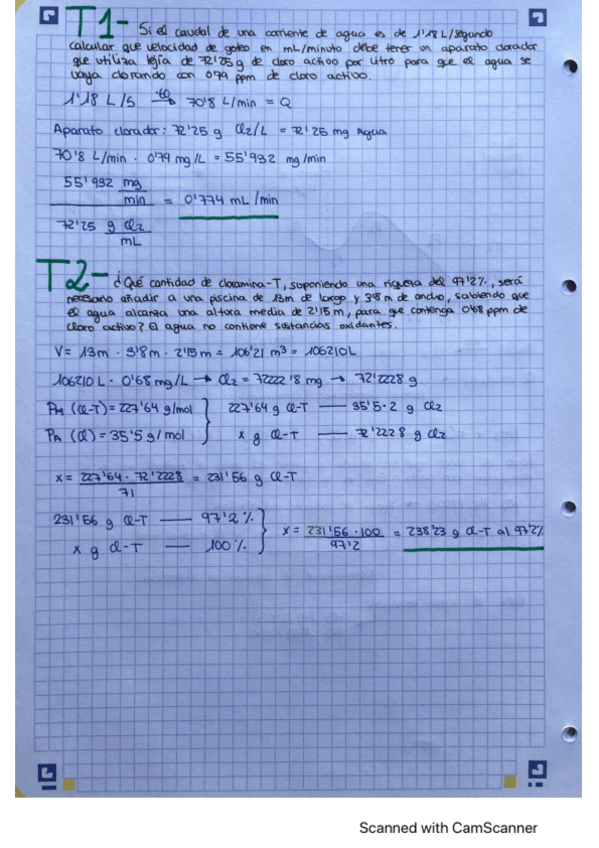 T1- Si el caudal de una corriente de agua es de 1'18 L/segundo
calcular que velocidad de goteo en mL/minuto debe tener un aparato clorador
que utiliza lejía de 72'25 g de cloro activo por litro para que el agua se
vaya clorando con 0'79 ppm de cloro activo.
1'18 L/s ·60→ 70'8 L/min = Q
Aparato clorador: 72'25 g Cl2/L = 72'25 mg Agua
70'8 L/min · 0'79 mg/L = 55'932 mg/min
55'932 mg/min
= 0'774 mL/min
72'25 g Cl2/mL
T2- ¿Qué cantidad de cloramina-T, suponiendo una riqueza del 97'2%, será
necesario añadir a una piscina de 13m de largo y 3'8 m de ancho, sabiendo que
el agua alcanza una altura media de 2'15 m, para que contenga 0'68 ppm de
cloro activo? El agua no contiene sustancias oxidantes.
V= 13m · 3'8m · 2'15m = 106'21 m³ = 106210L
106210 L · 0'68 mg/L → Cl2 = 72222'8 mg → 72'2228 g
PM (Cl-T) = 227'64 g/mol } 227'64 g Cl-T — 35'5·2 g Cl2
PA (Cl) = 35'5 g/mol } x g Cl-T — 72'2228 g Cl2
x = 227'64 · 72'2228 / 71 = 231'56 g Cl-T
231'56 g Cl-T — 97'2% } x = 231'56 · 100 / 97'2 = 238'23 g Cl-T al 97'2%
x g Cl-T — 100%
Scanned with CamScanner